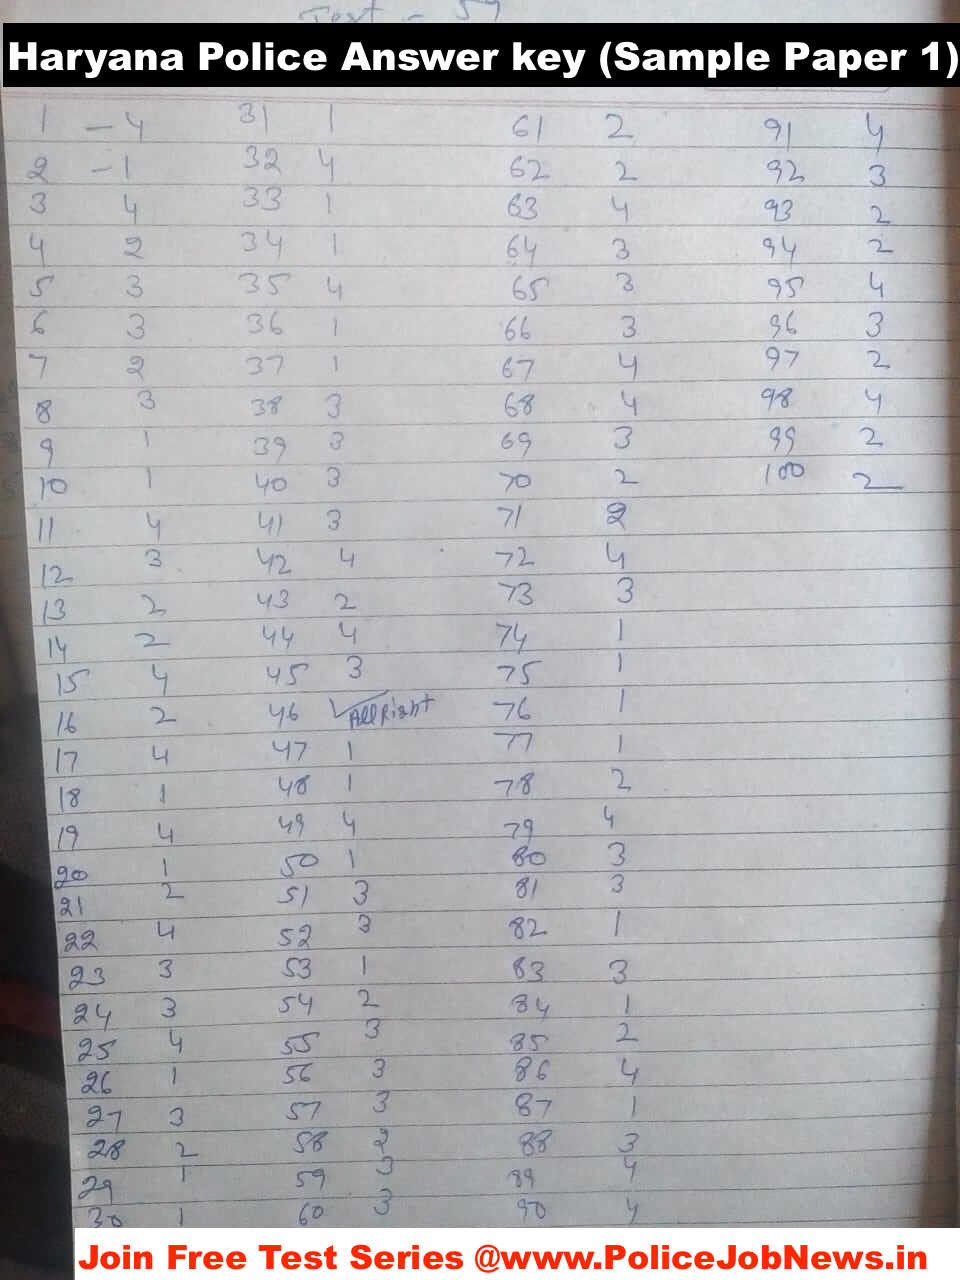 Test - 59
Haryana Police Answer key (Sample Paper 1)
1 - 4 31 1 61 2 91 4
2 - 1 32 4 62 2 92 3
3 4 33 1 63 4 93 2
4 2 34 1 64 3 94 2
5 3 35 4 65 3 95 4
6 3 36 1 66 3 96 3
7 2 37 1 67 4 97 2
8 3 38 3 68 4 98 4
9 1 39 3 69 3 99 2
10 1 40 3 70 2 100 2
11 4 41 3 71 2
12 3 42 4 72 4
13 2 43 2 73 3
14 2 44 4 74 1
15 4 45 3 75 1
16 2 46 ✓All Right 76 1
17 4 47 1 77 1
18 1 48 1 78 2
19 4 49 4 79 4
20 1 50 1 80 3
21 2 51 3 81 3
22 4 52 3 82 1
23 3 53 1 83 3
24 3 54 2 84 1
25 4 55 3 85 2
26 1 56 3 86 4
27 3 57 3 87 1
28 2 58 2 88 3
29 1 59 3 89 4
30 1 60 3 90 4
Join Free Test Series @www.PoliceJobNews.in